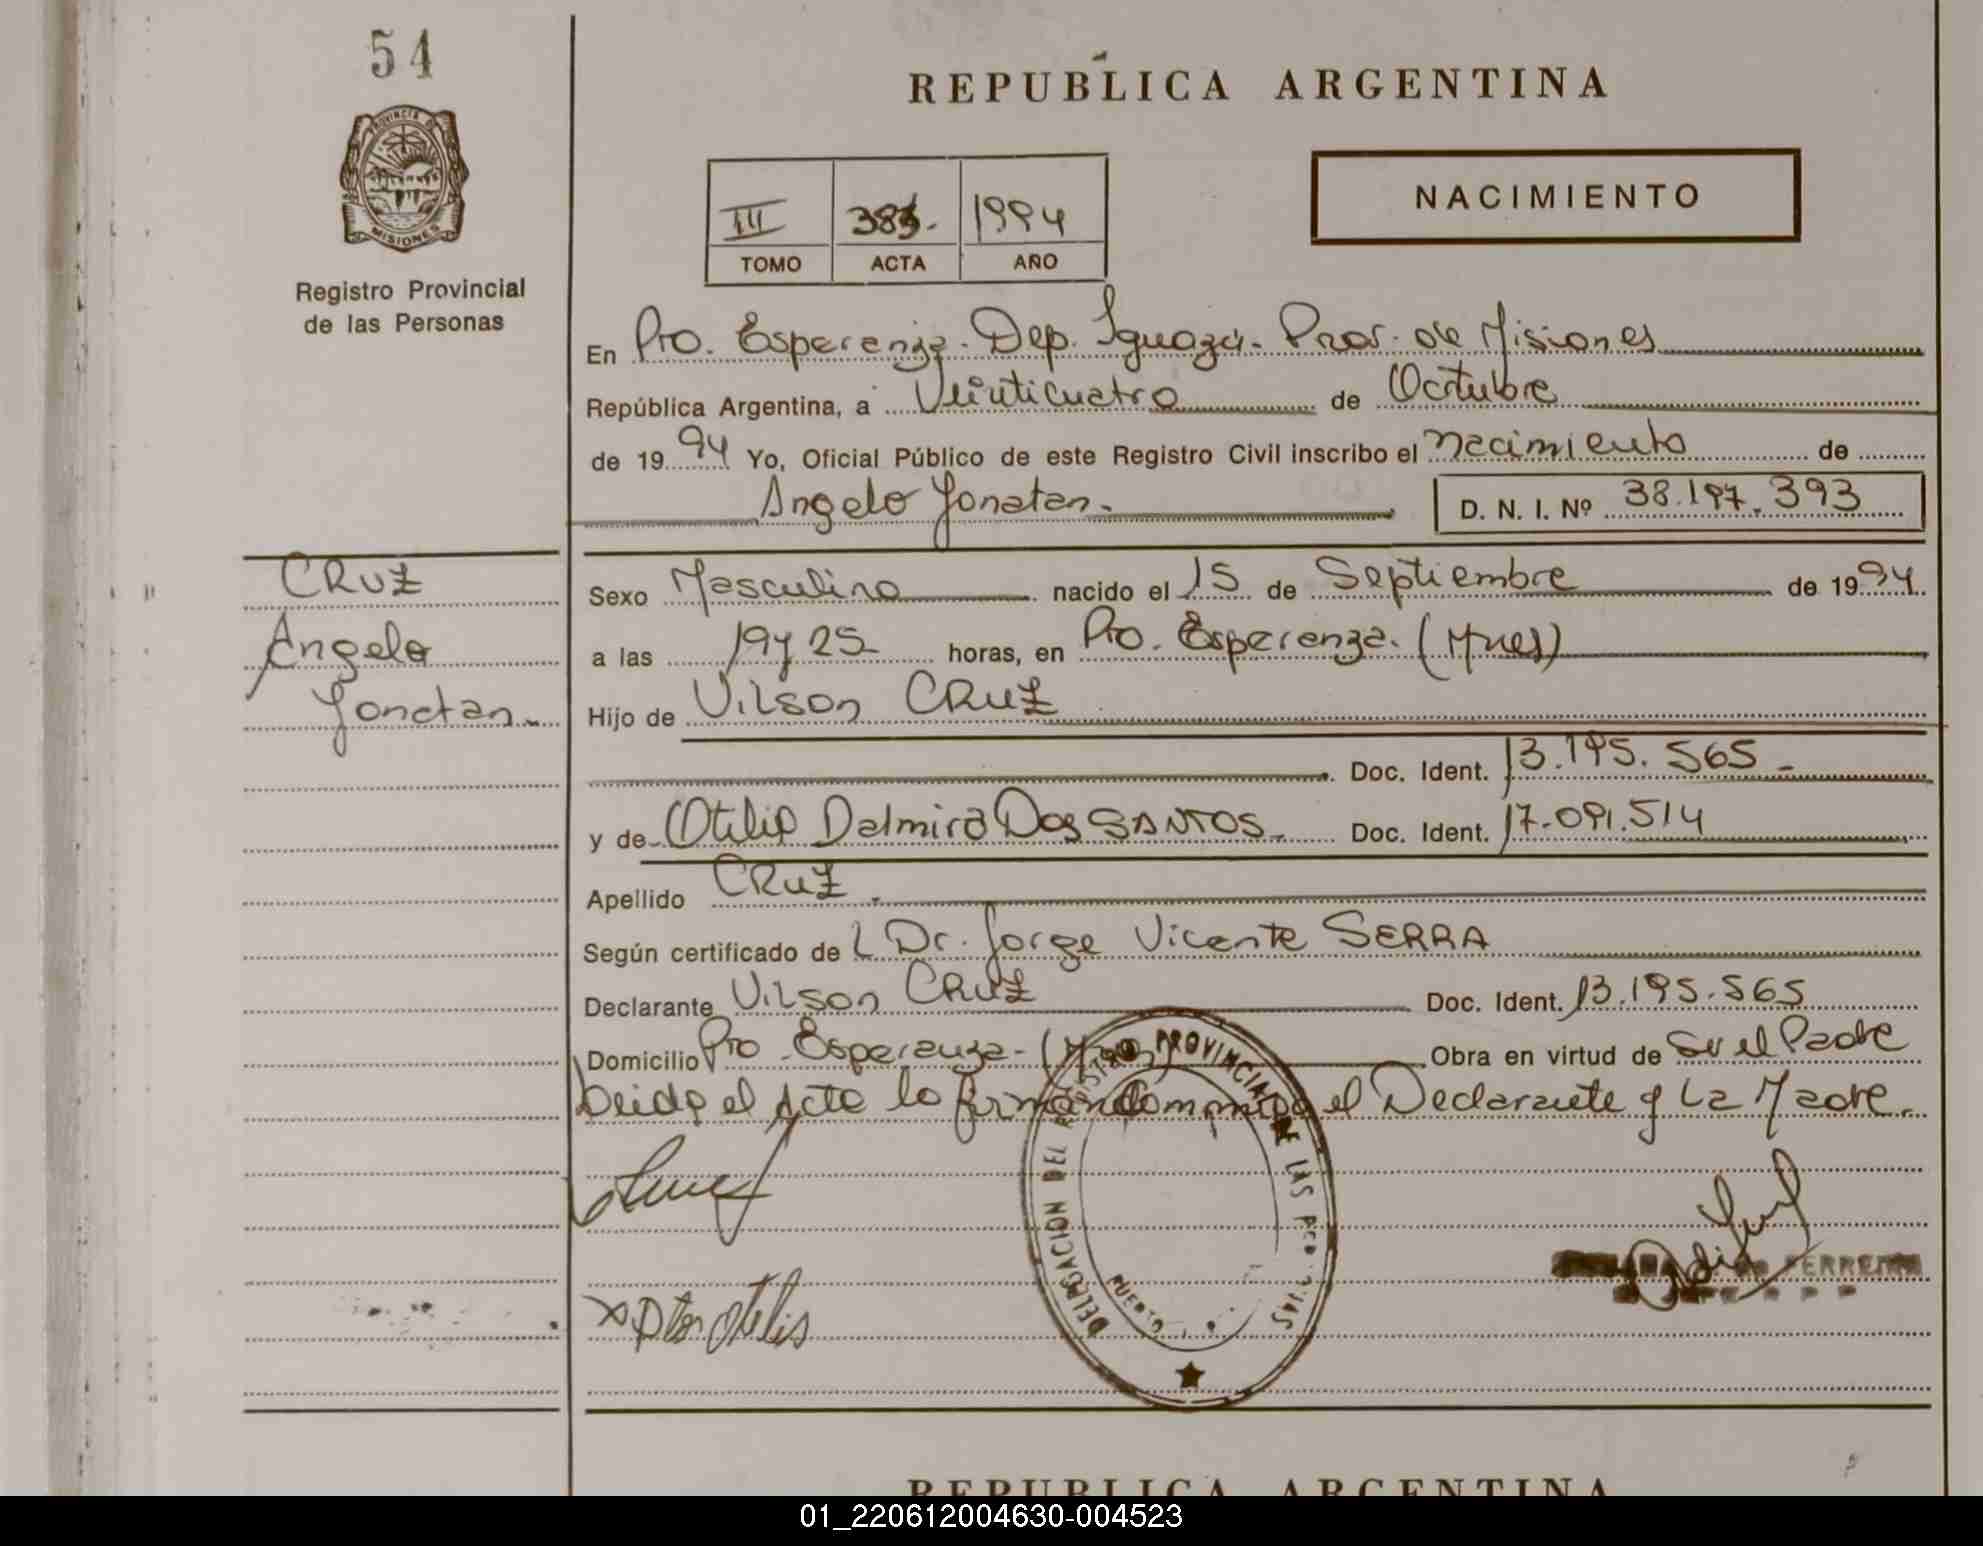 54
REPUBLICA ARGENTINA
PROVINCIA DE
MISIONES
Registro Provincial
de las Personas
III 1994
TOMO ACTA AÑO
NACIMIENTO
En Pto. Esperanza. Dep. Iguazú. Prov. de Misiones
República Argentina, a Veinticuatro de Octubre
de 1994 Yo, Oficial Público de este Registro Civil inscribo el nacimiento de
Angelo Jonatan. D. N. I. Nº 38.197.393
CRUZ
Angelo
Jonatan.
Sexo Masculino nacido el 15 de Septiembre de 1994.
a las 19 y 25 horas, en Pto. Esperanza. (Mnes)
Hijo de Vilson CRUZ
Doc. Ident. 13.195.565
y de Otilia Dalmira Dos SANTOS Doc. Ident. 17.091.514
Apellido CRUZ
Según certificado de L Dr. Jorge Vicente SERRA
Declarante Vilson CRUZ Doc. Ident. 13.195.565
Domicilio Pto. Esperanza - Obra en virtud de Ser el Padre
Leida el Acta la firman el Declarante y La Madre.
DELEGACION DEL REGISTRO PROVINCIAL DE LAS PERSONAS
PUERTO
FERREIRA
REPUBLICA ARGENTINA
01_220612004630-004523